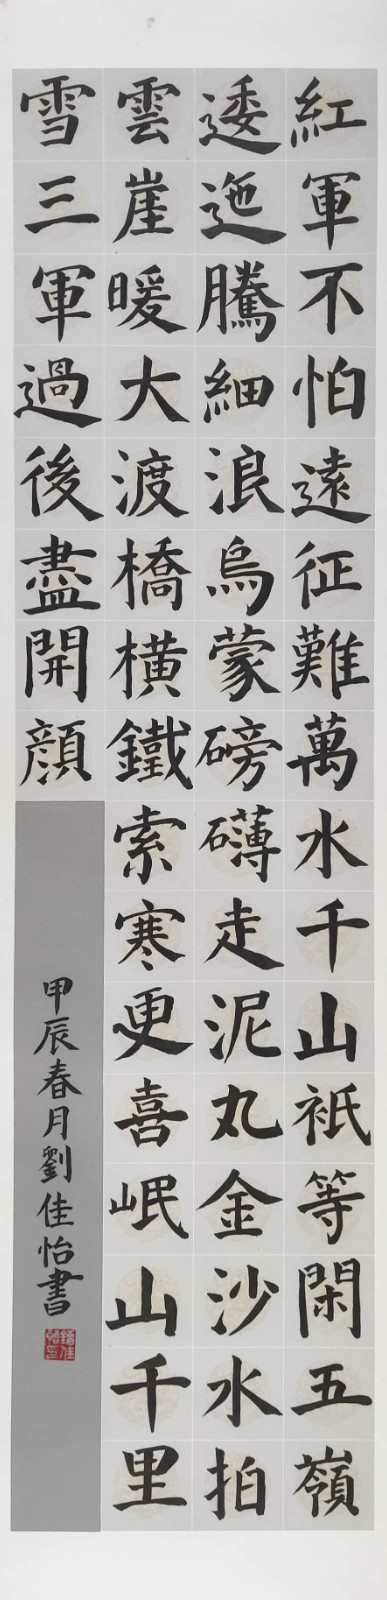 紅軍不怕遠征難萬水千山衹等閑五嶺
逶迤騰細浪烏蒙磅礴走泥丸金沙水拍
雲崖暖大渡橋橫鐵索寒更喜岷山千里
雪三軍過後盡開顏
甲辰春月劉佳怡書